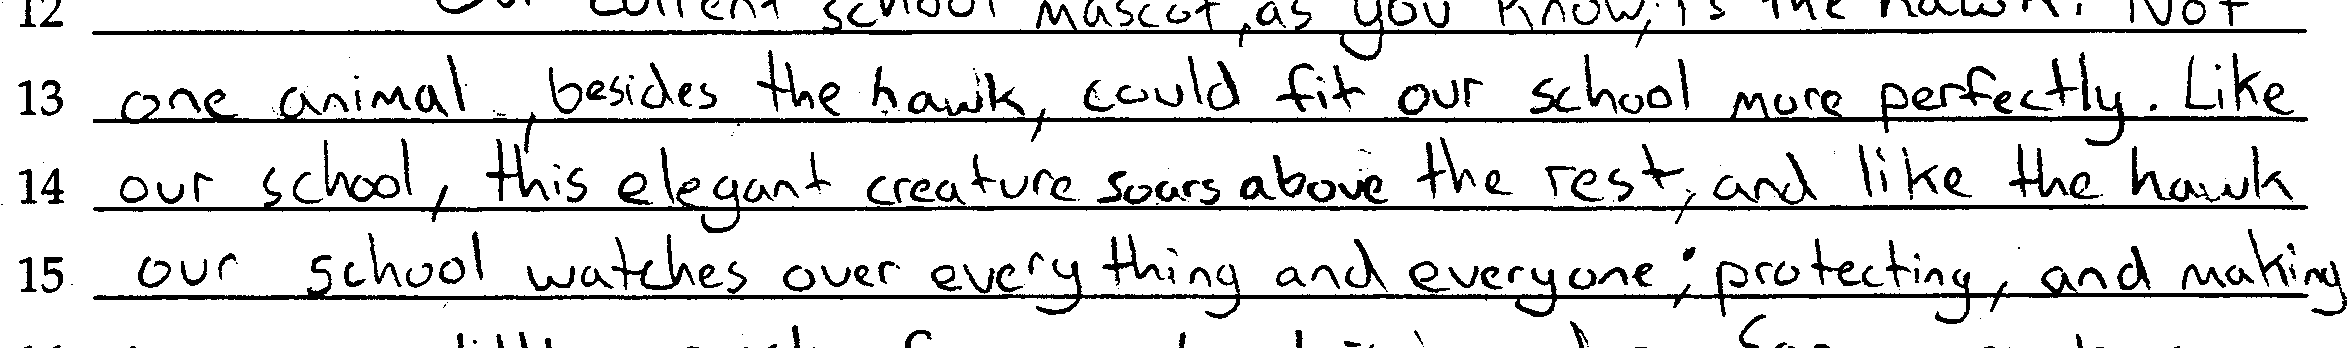 12 Our current school mascot, as you know, is the hawk. Not
13 one animal, besides the hawk, could fit our school more perfectly. Like
14 our school, this elegant creature soars above the rest, and like the hawk
15 our school watches over every thing and everyone; protecting, and making